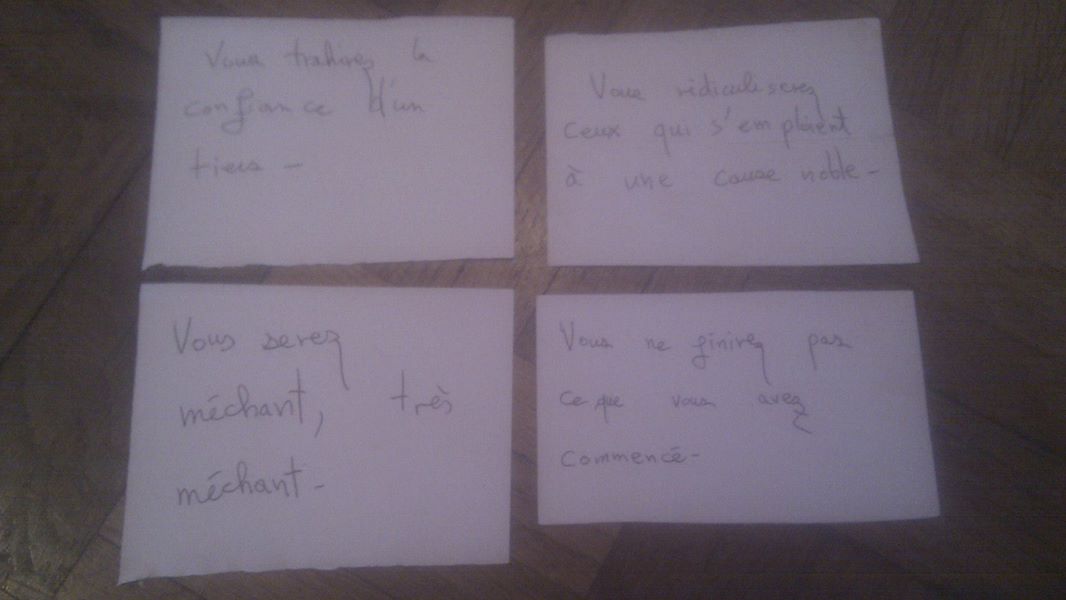 Vous trahirez la
confiance d'un
tiers -
Vous ridiculiserez
ceux qui s'emploient
à une cause noble -
Vous serez
méchant, très
méchant -
Vous ne finirez pas
ce que vous avez
commencé -